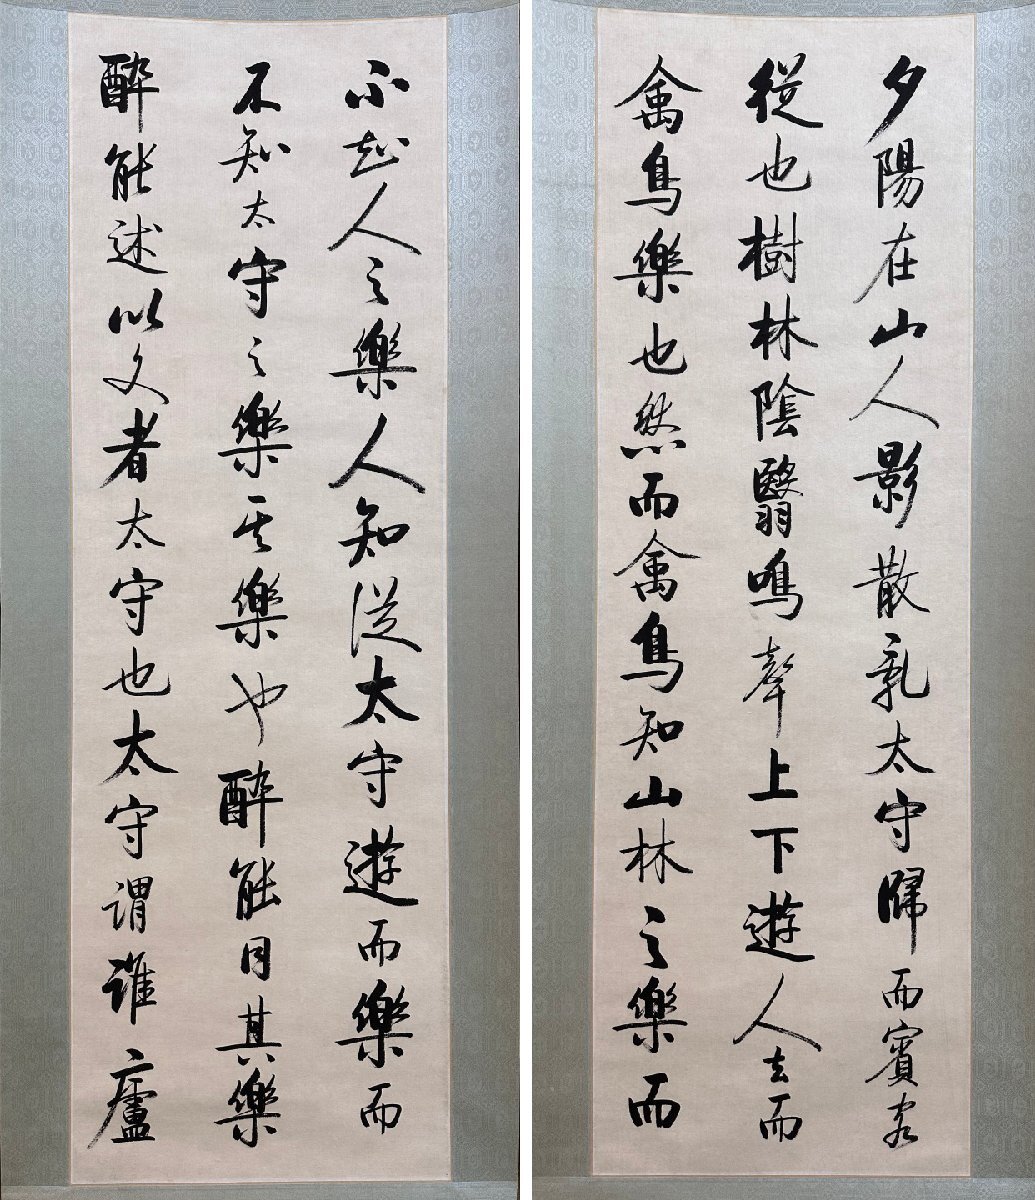 夕陽在山人影散亂太守歸而賓客
從也樹林陰翳鳴聲上下遊人去而
禽鳥樂也然而禽鳥知山林之樂而
不知人之樂人知從太守遊而樂而
不知太守之樂其樂也醉能同其樂
醉能述以文者太守也太守謂誰廬